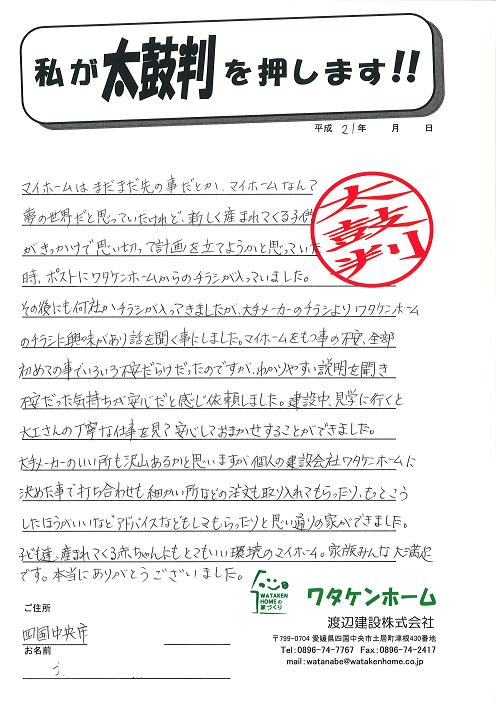 私が太鼓判を押します!!
平成 21年 月 日
マイホームはまだまだ先の事だとか、マイホームなんて
夢の世界だと思っていたけれど、新しく産まれてくる子供
がきっかけで思い切って計画を立てようかと思っていた
時、ポストにワタケンホームからのチラシが入っていました。
太鼓判
その後にも何社かチラシが入ってきましたが、大手メーカーのチラシよりワタケンホーム
のチラシに興味があり話を聞く事にしました。マイホームをもつ事の不安、全部
初めての事でいろいろ不安だらけだったのですが、わかりやすい説明を聞き
不安だった気持ちが安心だと感じ依頼しました。建設中、見学に行くと
大工さんの丁寧な仕事を見て安心しておまかせすることができました。
大手メーカーのいい所も沢山あるかと思いますが個人の建設会社ワタケンホームに
決めた事で打ち合わせも細かい所などの注文も取り入れてもらったり、もっとこう
したほうがいいなどアドバイスなどもしてもらったりと思い通りの家ができました。
子ども達、産まれてくる赤ちゃんにもとてもいい環境のマイホーム。家族みんな大満足
です。本当にありがとうございました。
ご住所
四国中央市
お名前
WATAKEN
HOMEの
家づくり
ワタケンホーム
渡辺建設株式会社
〒799-0704 愛媛県四国中央市土居町津根430番地
Tel:0896-74-7767 Fax:0896-74-2417
mail:watanabe@watakenhome.co.jp